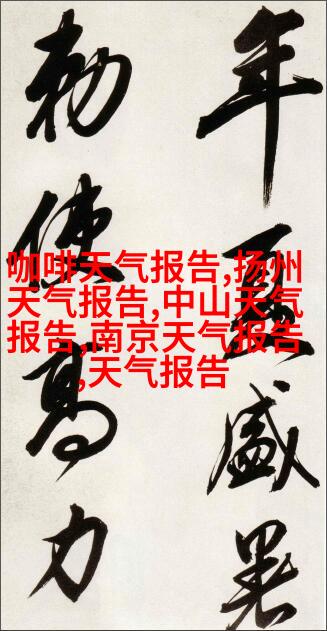 年盛
勅使高力
咖啡天气报告,扬州
天气报告,中山天气
报告,南京天气报告
,天气报告